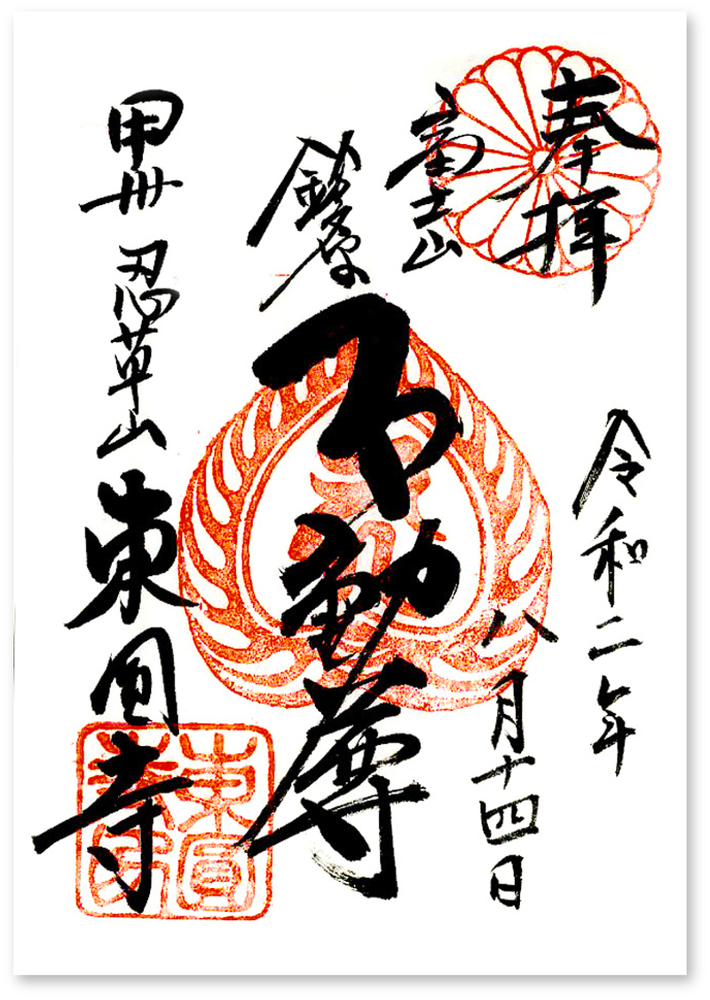 奉拝
令和二年
八月十四日
富士山
鈴原
不動尊
甲州 忍草山 東圓寺
東圓
寺印